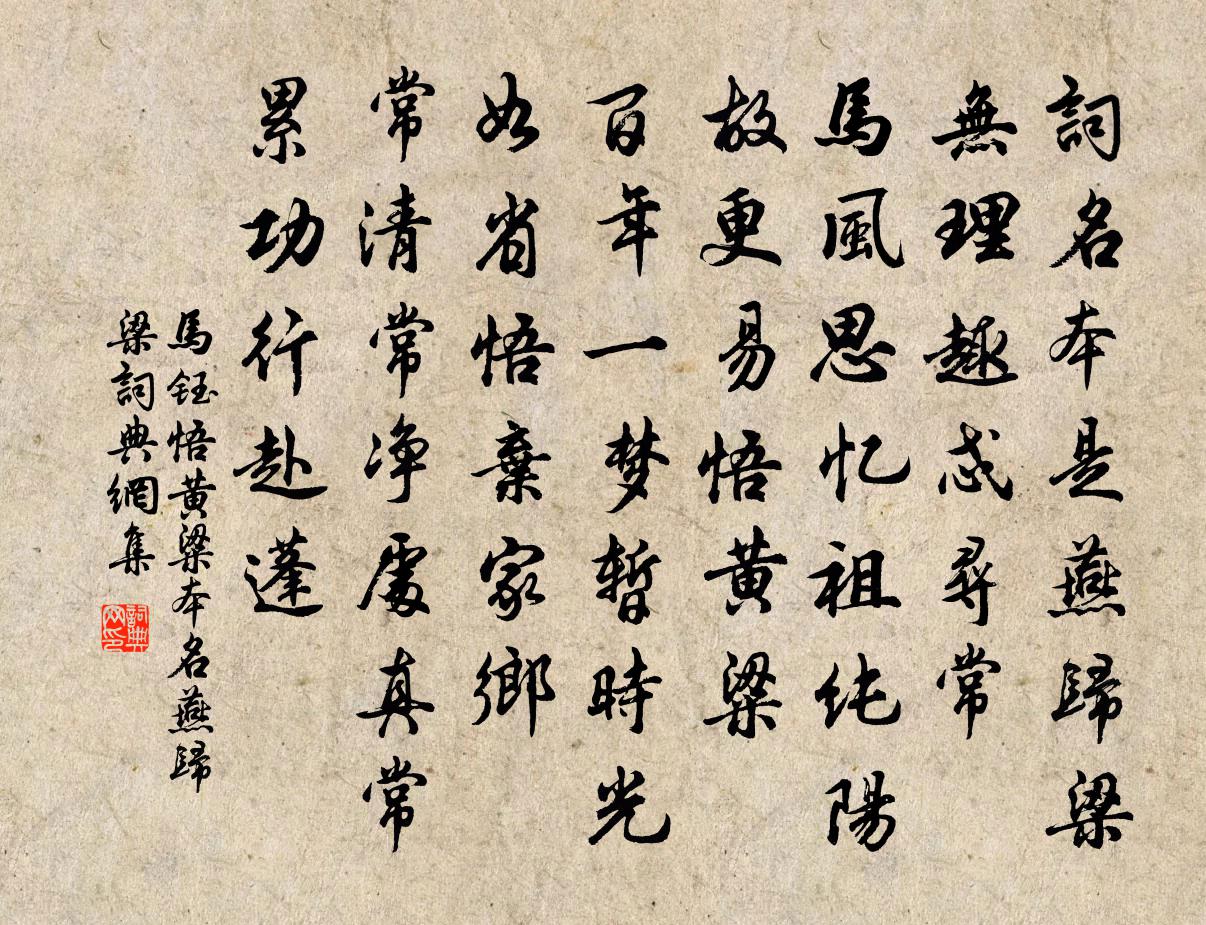 詞名本是燕歸梁
無理趣忒尋常
馬風思忆祖纯陽
故更易悟黄梁
百年一梦暫時光
如省悟棄家鄉
常清常净處真常
累功行赴蓬
馬鈺悟黄梁本名燕歸
梁詞典網集
詞典
网印